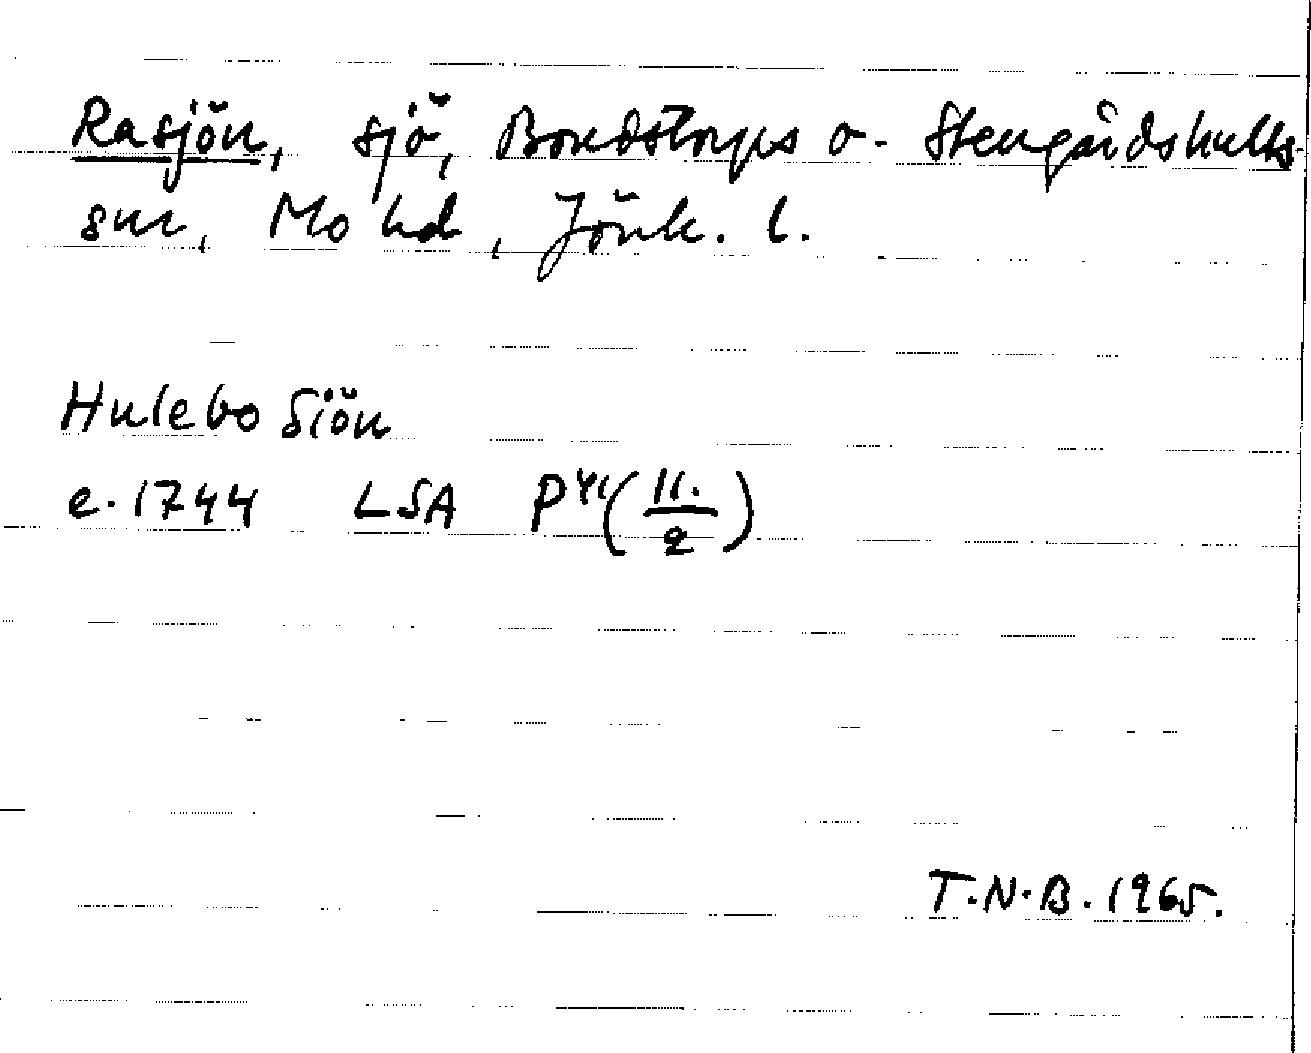 Rasjön, sjö, Bondstorps o. Stengårdshults
snr, Mo hd, Jönk. l.
Hulebo Siön
e. 1744 LSA P41 (11./2)
T.N.B. 1965.